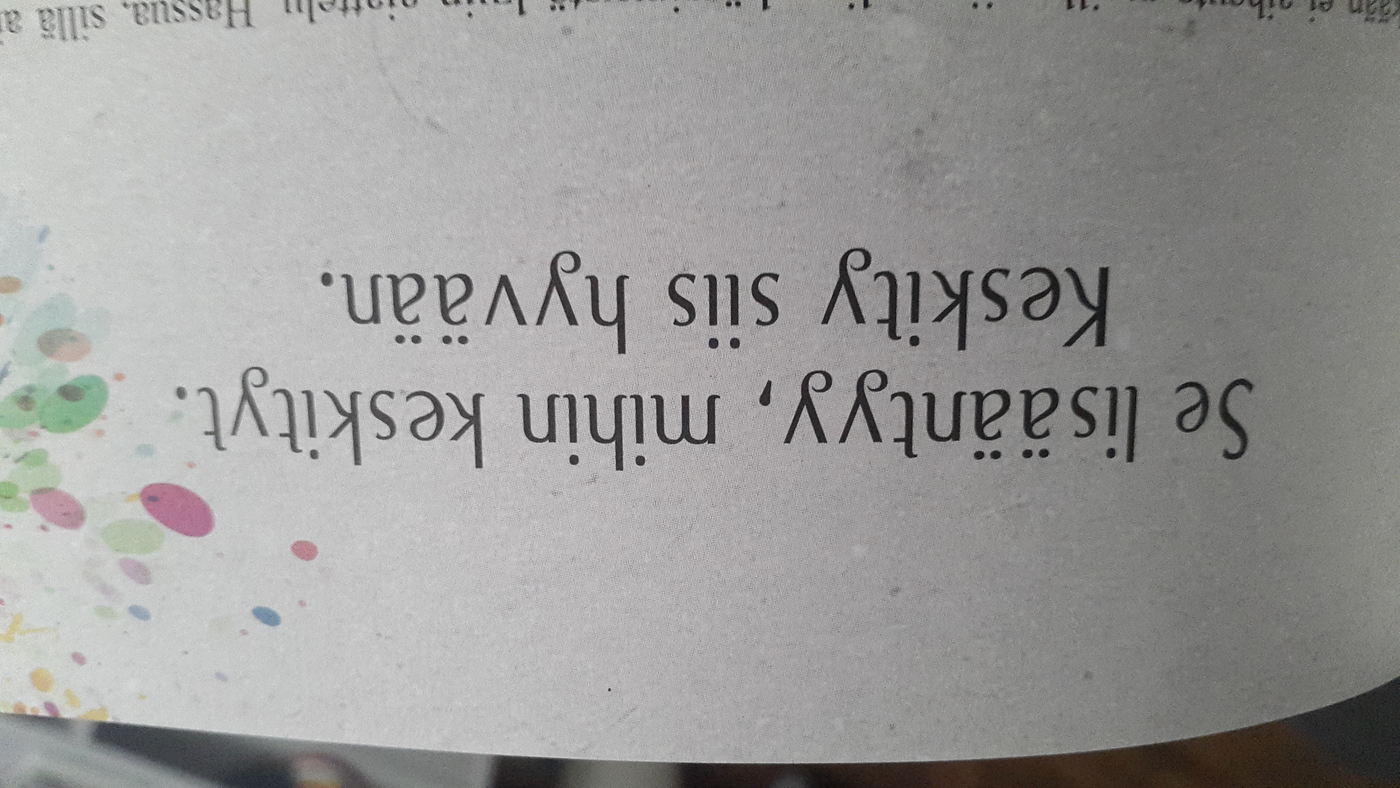 Se lisääntyy, mihin keskityt.
Keskity siis hyvään.
Hassua, sillä